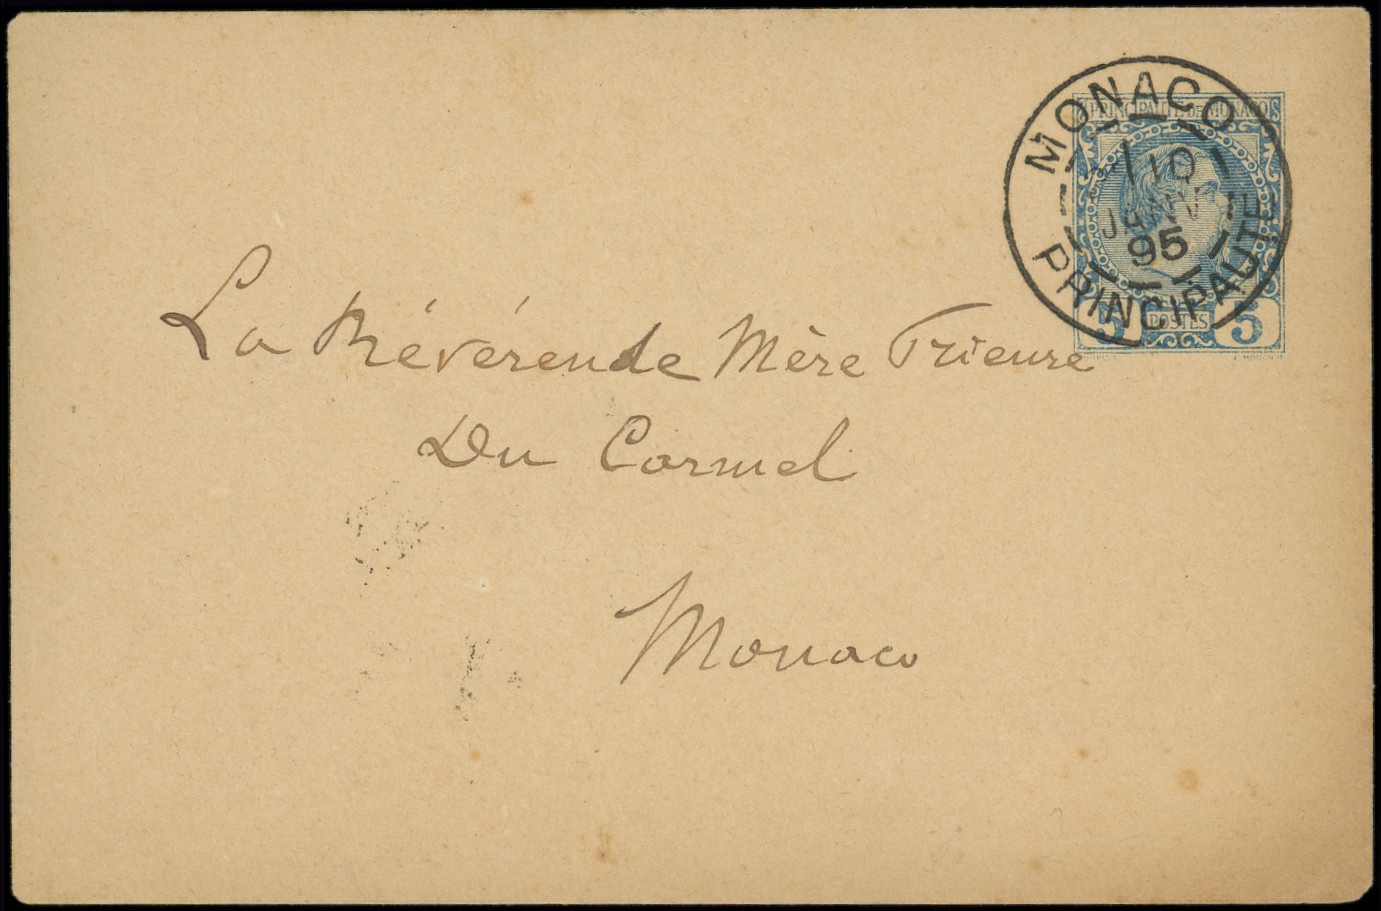 PRINCIPALITÉ DE MONACO
MONACO
10
JANV
95
PRINCIPAUTE
5 POSTES 5
La Révérende Mère Prieure
Du Carmel
Monaco